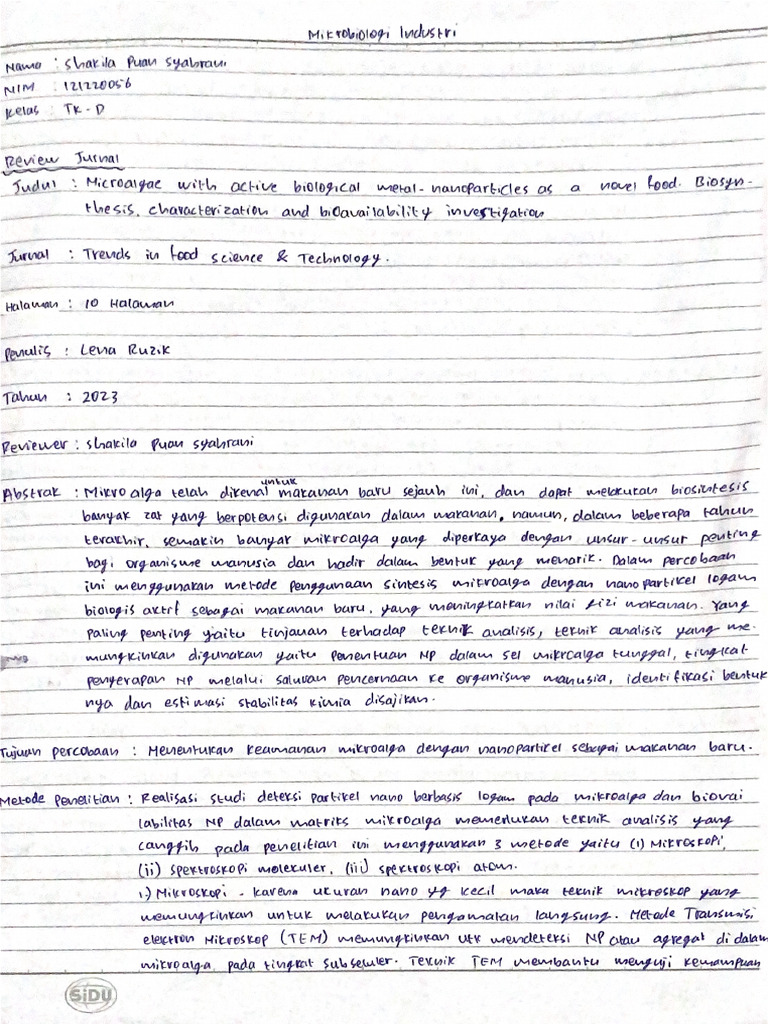 Mikrobiologi Industri
Nama : Shakila Puan Syabrani
NIM : 121220056
Kelas : TK-D
Review Jurnal
Judul : Microalgae with active biological metal-nanoparticles as a novel food. Biosyn-
thesis, characterization and bioavailability investigation
Jurnal : Trends in food science & Technology.
Halaman : 10 Halaman
Penulis : Lena Ruzik
Tahun : 2023
Reviewer : Shakila Puan Syabrani
untuk
Abstrak : Mikroalga telah dikenal makanan baru sejauh ini, dan dapat melakukan biosintesis
banyak zat yang berpotensi digunakan dalam makanan. namun, dalam beberapa tahun
terakhir, semakin banyak mikroalga yang diperkaya dengan unsur-unsur penting
bagi organisme manusia dan hadir dalam bentuk yang menarik. Dalam percobaan
ini menggunakan metode penggunaan sintesis mikroalga dengan nanopartikel logam
biologis aktif sebagai makanan baru, yang meningkatkan nilai gizi makanan. Yang
paling penting yaitu tinjauan terhadap teknik analisis, teknik analisis yang me-
mungkinkan digunakan yaitu penentuan NP dalam sel mikroalga tunggal, tingkat
penyerapan NP melalui saluran pencernaan ke organisme manusia, identifikasi bentuk
nya dan estimasi stabilitas kimia disajikan.
Tujuan percobaan : Menentukan keamanan mikroalga dengan nanopartikel sebagai makanan baru.
Metode Penelitian : Realisasi studi deteksi partikel nano berbasis logam pada mikroalga dan biovai
labilitas NP dalam matriks mikroalga memerlukan teknik analisis yang
canggih pada penelitian ini menggunakan 3 metode yaitu (i) Mikroskopi,
(ii) spektroskopi molekuler, (iii) spektroskopi atom.
1.) Mikroskopi - karena ukuran nano yg kecil maka teknik mikroskop yang
memungkinkan untuk melakukan pengamatan langsung. Metode Transmisi
elektron Mikroskop (TEM) memungkinkan utk mendeteksi NP atau agregat di dalam
mikroalga pada tingkat subseluler. Teknik TEM membantu menguji kemampuan
SiDU